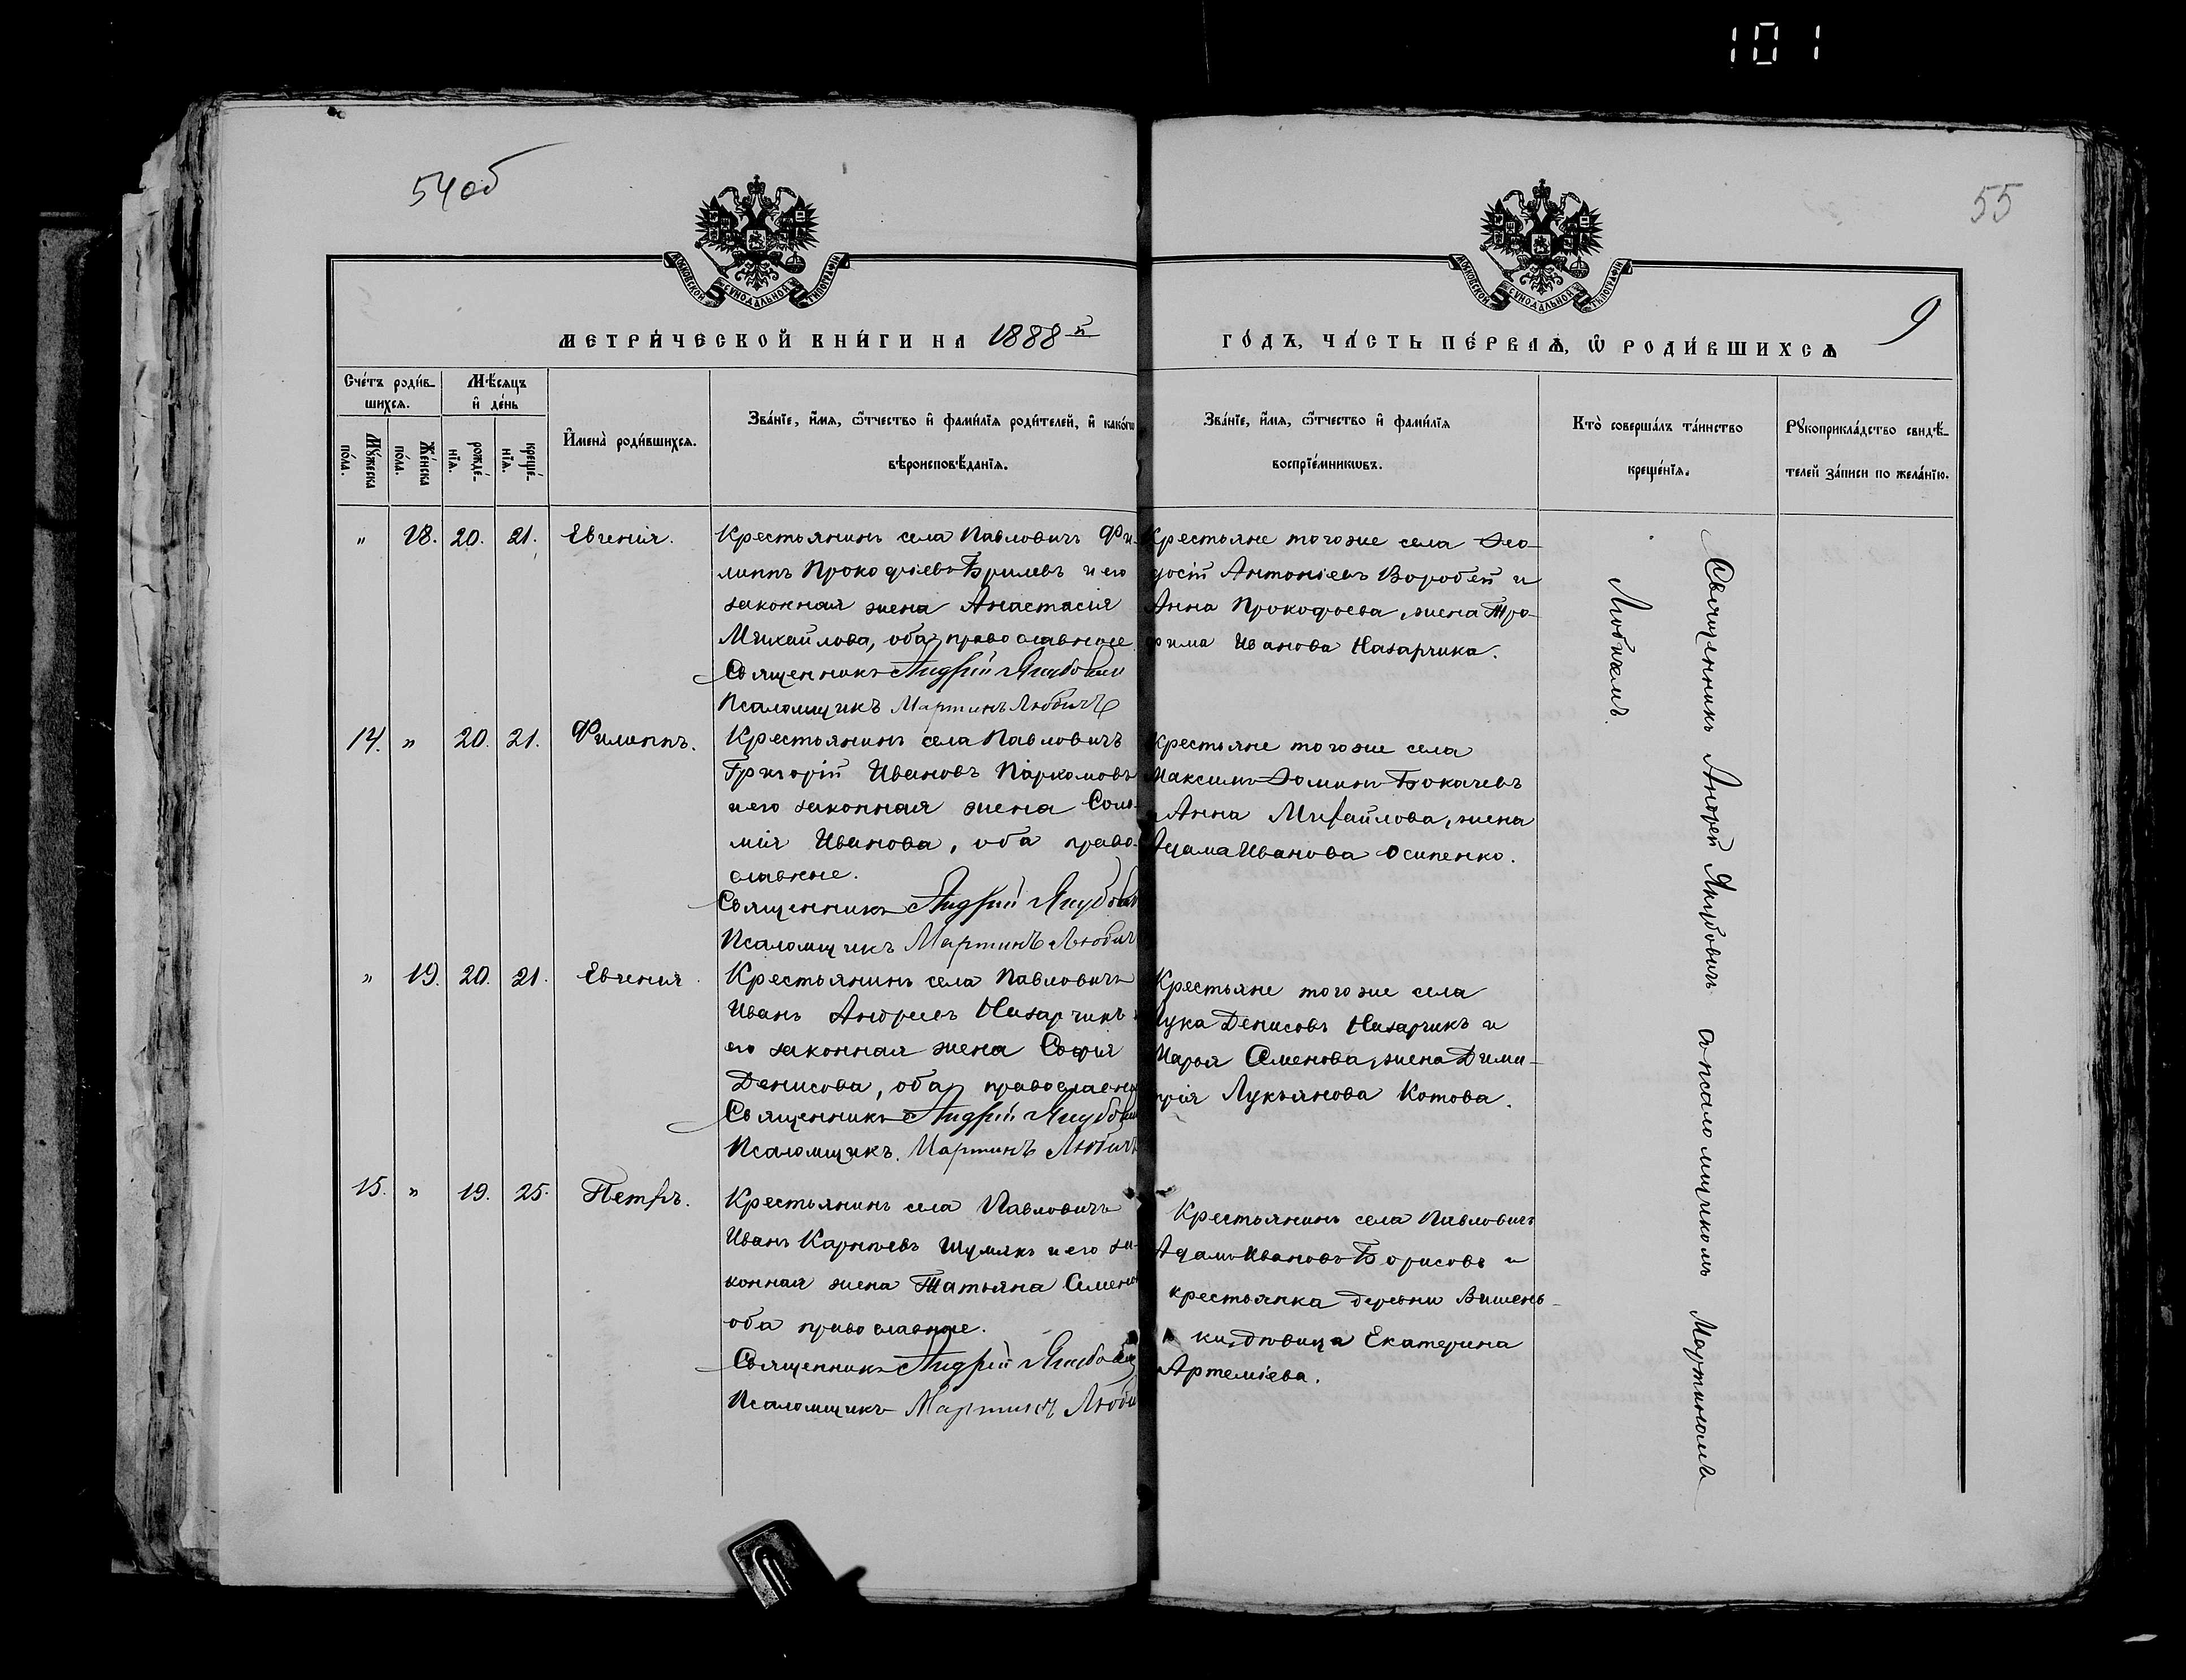 101
54об
55
МОСКОВСКОЙ СѴНОДАЛЬНОЙ ТИПОГРАФІИ
МОСКОВСКОЙ СѴНОДАЛЬНОЙ ТИПОГРАФІИ
9
МЕТРИ́ЧЕСКОЙ КНИ́ГИ НА 1888й
ГО́ДЪ, ЧА́СТЬ ПЕ́РВАѦ, Ѡ҆ РОДИ́ВШИХСѦ
Сче́тъ роди́в-
шихсѧ.
Мѣ́сѧцъ
и҆ де́нь
Мꙋ́жеска
по́ла.
Же́нска
по́ла.
рожде́-
нїѧ.
креще́-
нїѧ.
И҆мена̀ роди́вшихсѧ.
Зва́нїе, и҆́мѧ, ѻ҆́тчество и҆ фами́лїѧ роди́телей, и҆ како́гѡ
вѣроисповѣ́данїѧ.
Зва́нїе, и҆́мѧ, ѻ҆́тчество и҆ фами́лїѧ
воспрїе́мникѡвъ.
Кто̀ соверша́лъ та́инство
креще́нїѧ.
Рꙋкоприкла́дство свидѣ́-
телей за́писи по жела́нїю.
" 18. 20. 21. Евгенія.
Крестьянинъ села Павловичъ Фи-
липпъ Прокофіевъ Брилевъ и его
законная жена Анастасія
Михайлова, оба православные
Священникъ Андрей Якубович
Псаломщикъ Мартинъ Любичъ
Крестьяне тогоже села Фео-
досій Антоніевъ Воробей и
Анна Прокофьева, жена Тро-
фима Иванова Назарчика.
14. " 20. 21. Филиппъ.
Крестьянинъ села Павловичъ
Григорій Ивановъ Пархомовъ
и его законная жена Соло-
мія Иванова, оба право-
славные.
Священникъ Андрей Якубович
Псаломщикъ Мартинъ Любич
Крестьяне тогоже села
Максимъ Фоминъ Бокачевъ
и Анна Михайлова, жена
Адама Иванова Осипенко.
" 19. 20. 21. Евгенія.
Крестьянинъ села Павловичъ
Иванъ Андреевъ Назарчикъ и
его законная жена Софія
Денисова, оба православны
Священникъ Андрей Якубович
Псаломщикъ Мартинъ Любичъ
Крестьяне тогоже села
Лука Денисовъ Назарчикъ и
Марья Семенова, жена Дими-
трія Лукьянова Котова.
15. " 19. 25. Петръ.
Крестьянинъ села Павловичъ
Иванъ Карпѣевъ Шумякъ и его за-
конная жена Татьяна Семено
оба православные.
Священникъ Андрей Якубович
Псаломщикъ Мартинъ Люби
Крестьянинъ села Павловичъ
Адамъ Ивановъ Борисовъ и
крестьянка деревни Вишень-
ки, дѣвица Екатерина
Артеміева.
Священникъ Андрей Якубовичъ съ псаломщикомъ Мартиномъ
Любичемъ.